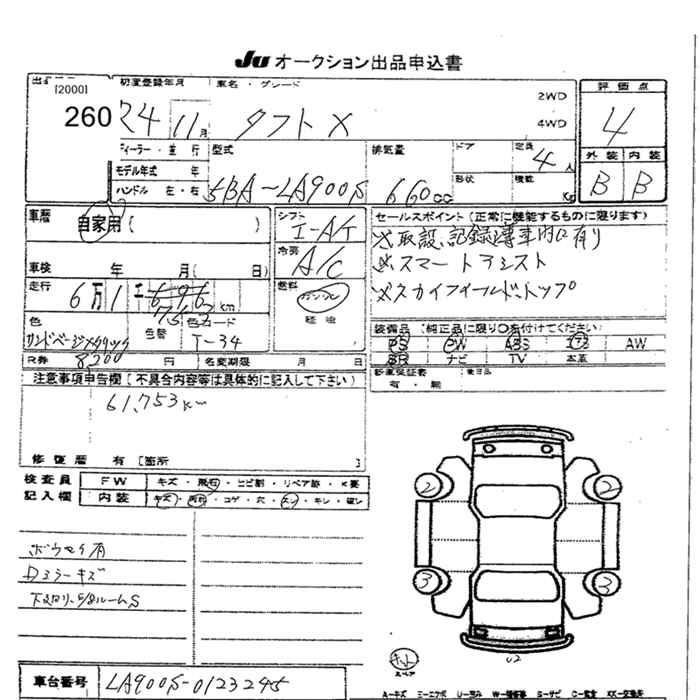 Ju オークション出品申込書
[2000]
260
初度登録年月
R4 11月
車名・グレード
タフト X
2WD
4WD
評価点
4
外装 内装
B B
ディーラー・並行
モデル年式 年
ハンドル 左・右
型式
5BA-LA900S
排気量
660cc
ドア
形状
定員
4人
積載
Kg
車歴
自家用( )
シフト
I-A/T
冷房
A/C
燃料
ガソリン
軽油
車検 年 月( 日)
走行
6万1
753km
色
サンドベージュメタリック
色替
色コード
T-34
R券
8200円
名変期限 月 日
セールスポイント(正常に機能するものに限ります)
取説、記録簿車内に有り
スマートアシスト
スカイフィールドトップ
装備品(純正品に限り○を付けてください)
PS PW ABS エアB AW
SR ナビ TV 本革
新車保証書
有・無
後日品
注意事項申告欄[不具合内容等は具体的に記入して下さい]
61,753km
修復歴 有[箇所 ]
検査員
記入欄
FW キズ・飛石・ヒビ割・リペア跡・X要
内装 キズ・汚れ・コゲ・穴・スレ・キレ・破レ
ボウセイ有
Dミラーキズ
下廻り、E/GルームS
2 2
3 3
キット
スペア
U2
車台番号 LA900S-0123245
A-キズ